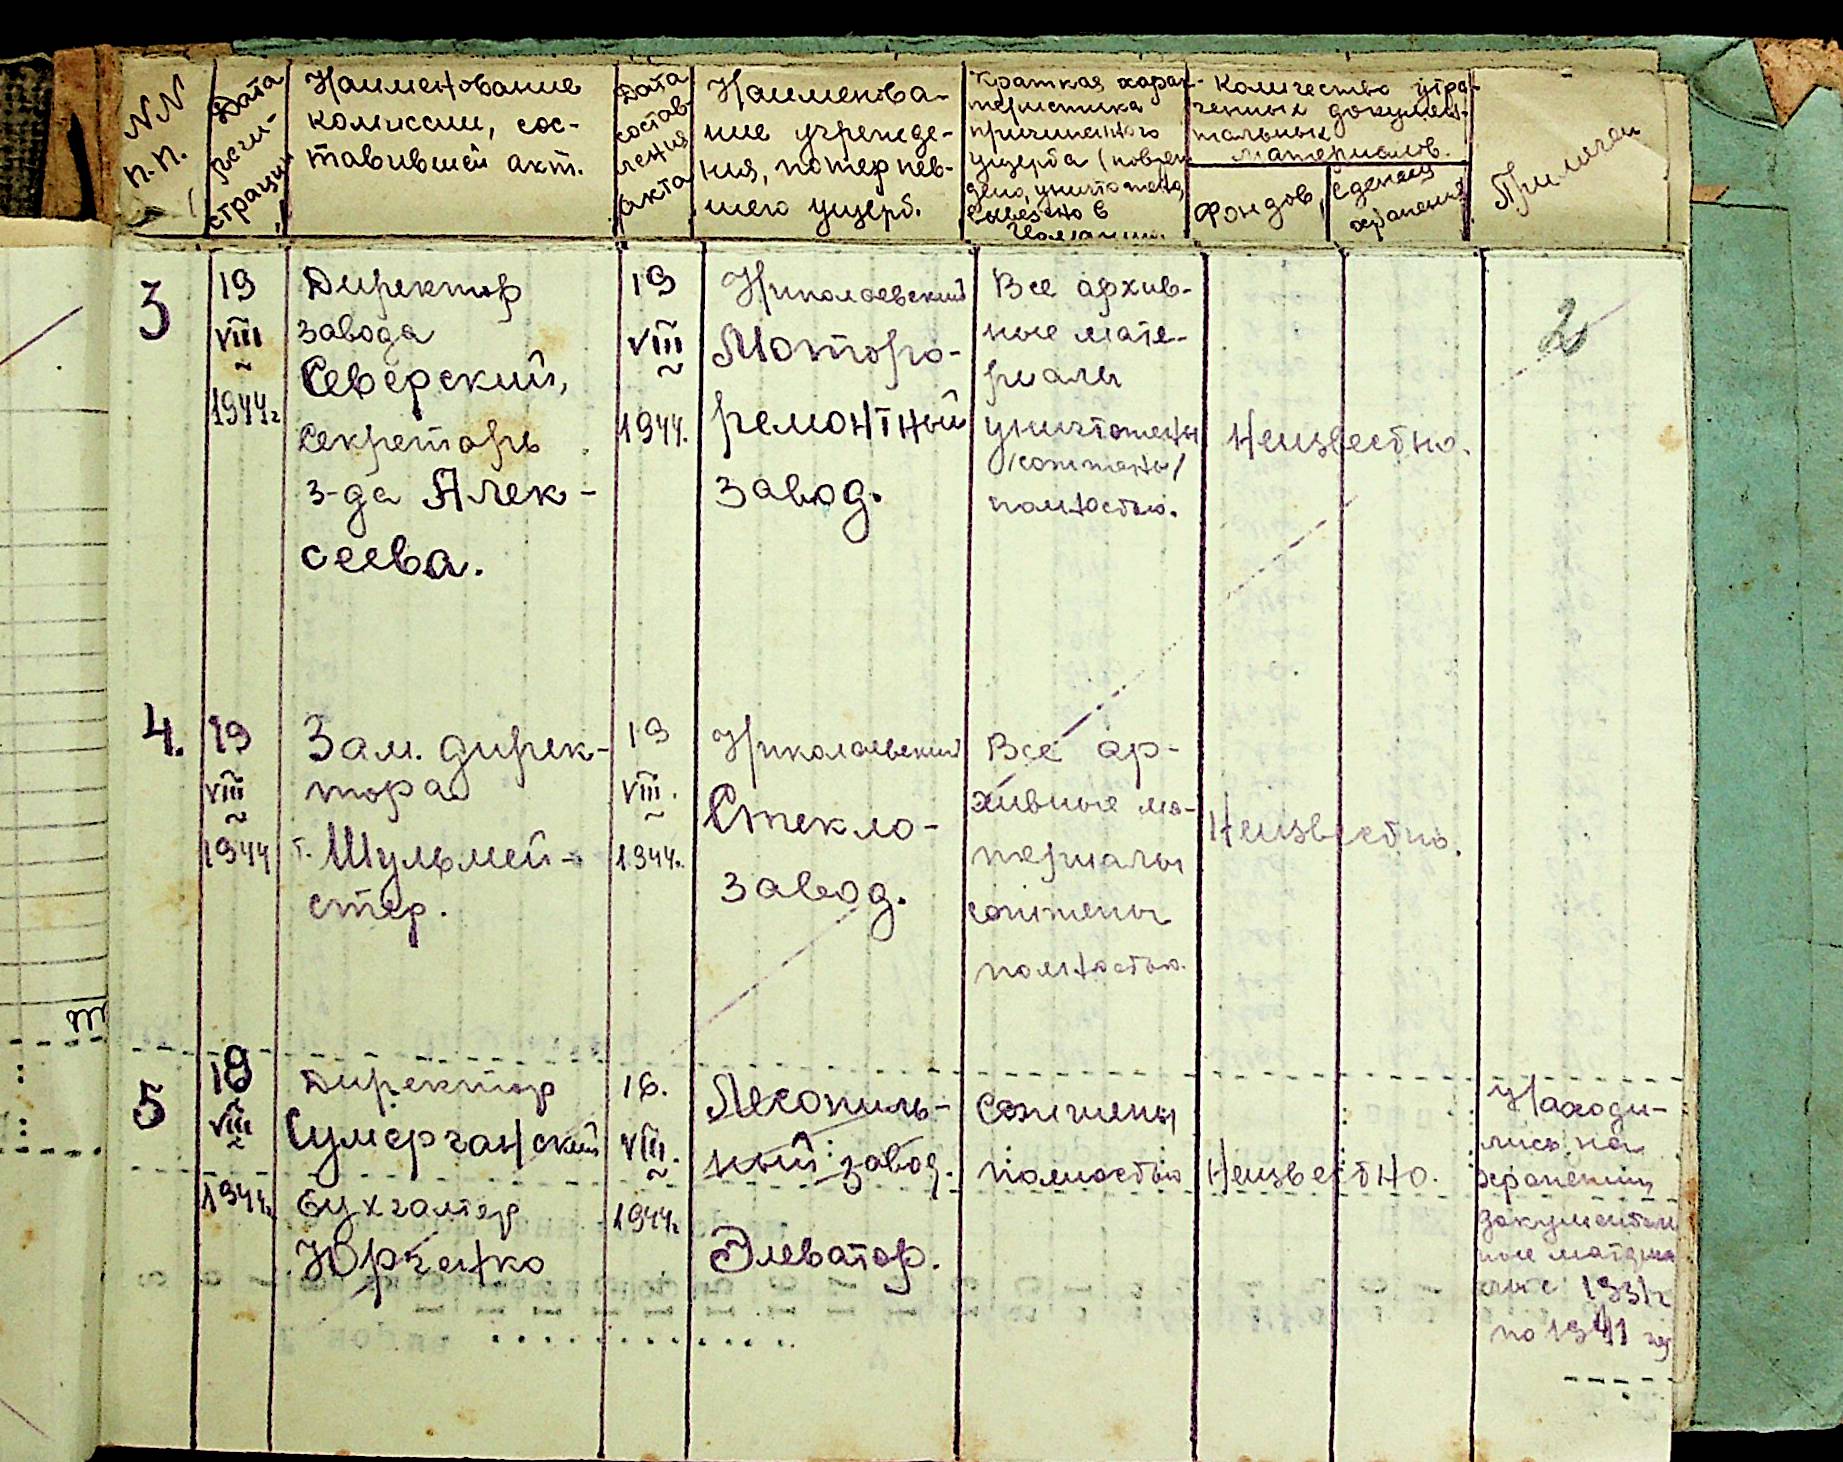 NN
п.п.
Дата
реги-
страции
Наименование
комиссии, сос-
тавившей акт.
Дата
состав
ления
акта
Наименова-
ние учрежде-
ния, потерпев-
шего ущерб.
Краткая харак-
теристика
причиненного
ущерба (повреж
дено, уничтожено,
вывезено в
Количество утра-
ченных докумен-
тальных
материалов.
Фондов,
Единиц
хранения
Примечан
3
19
VIII
1944г
Директор
завода
Северский,
Секретарь
з-да Алек-
сеева.
19
VIII
1944.
Николаевский
Моторо-
ремонтный
завод.
Все архив-
ные мате-
риалы
уничтожены
/сожжены/
полностью.
Неизвестно.
2
4.
19
VIII
1944
Зам. дирек-
тора
т. Шульмей-
стер.
19
VIII.
1944.
Николаевский
Стекло-
завод.
Все ар-
хивные ма-
териалы
сожжены
полностью.
Неизвестно.
5
19
VIII
1944г.
Директор
Сумерчанский
Бухгалтер
Юрченко
16.
VIII.
1944г
Лесопиль-
ный завод.
Элеватор.
Сожжены
полностью
Неизвестно.
Находи-
лись на
хранении
документаль
ные материа
лы с 1931г
по 1941 год